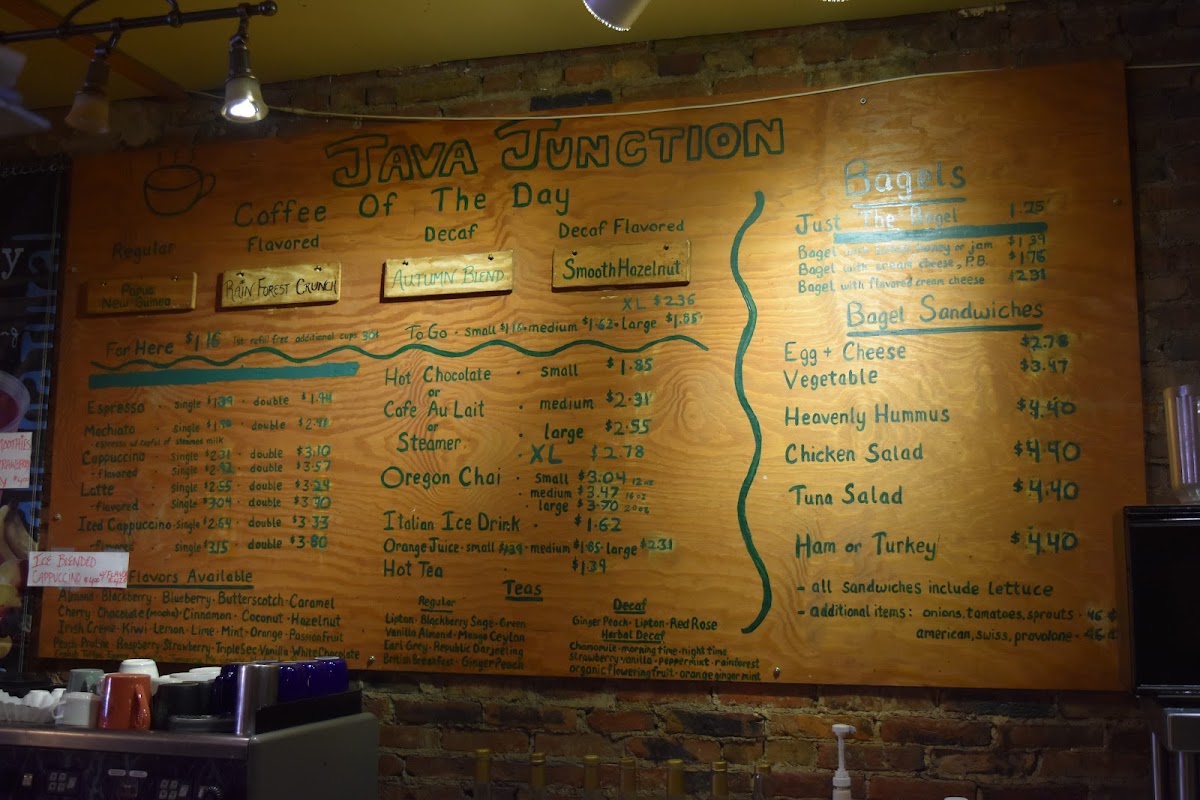 JAVA JUNCTION
Coffee Of The Day
Regular Flavored Decaf Decaf Flavored
Papua New Guinea
RAIN FOREST CRUNCH
AUTUMN BLEND
Smooth Hazelnut
XL $2.36
For Here $1.16 1st refill free additional cups 30¢
To Go · small $1.16 · medium $1.62 · large $1.85
Espresso · single $1.39 · double $1.94
Mochiato · single · double
· espresso w/capful of steamed milk
Cappuccino · single $2.31 · double $3.10
- flavored · single $2.92 · double $3.57
Latte · single $2.55 · double $3.24
- flavored · single $3.04 · double $3.70
Iced Cappuccino · single $2.64 · double $3.33
single $3.15 · double $3.80
ICE BLENDED
CAPPUCCINO
Flavors Available
Almond · Blackberry · Blueberry · Butterscotch · Caramel
Cherry · Chocolate (mocha) · Cinnamon · Coconut · Hazelnut
Irish Creme · Kiwi · Lemon · Lime · Mint · Orange · Passion Fruit
Peach Praline · Raspberry Strawberry · Triple Sec · Vanilla · White Chocolate
Hot Chocolate · small $1.85
or
Cafe Au Lait · medium $2.31
or
Steamer · large $2.55
· XL $2.78
Oregon Chai · small $3.04 12oz
· medium $3.47 16oz
· large $3.70 20oz
Italian Ice Drink · $1.62
Orange Juice · small $1.39 · medium $1.85 · large $2.31
Hot Tea $1.39
Teas
Regular
Lipton · Blackberry Sage · Green
Vanilla Almond · Mango Ceylon
Earl Grey · Republic Darjeeling
British Breakfast · Ginger Peach
Decaf
Ginger Peach · Lipton · Red Rose
Herbal Decaf
Chamomile · morning time · night time
strawberry · vanilla · peppermint · rainforest
organic flowering fruit · orange ginger mint
Bagels
Just The Bagel 1.25
Bagel with honey or jam $1.39
Bagel with cream cheese, P.B. $1.76
Bagel with flavored cream cheese $2.31
Bagel Sandwiches
Egg + Cheese $2.78
Vegetable $3.47
Heavenly Hummus $4.40
Chicken Salad $4.40
Tuna Salad $4.40
Ham or Turkey $4.40
- all sandwiches include lettuce
- additional items: onions, tomatoes, sprouts · 46¢
american, swiss, provolone · 46¢